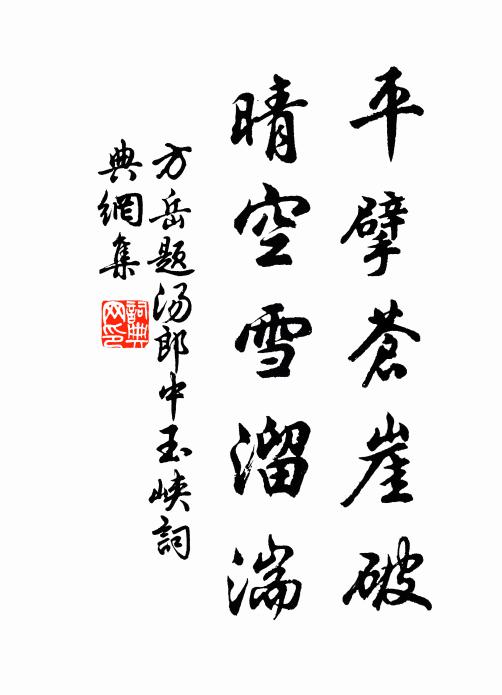 平擘蒼崖破
晴空雪溜湍
方岳題湯郎中玉峽詞
典網集
詞典
网印